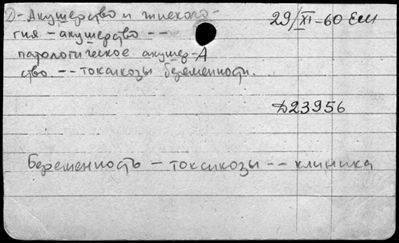 Д - Акушерство и гинеколо-
гия - акушерство --
патологическое акушер-
ство -- токсикозы беременности.
29/XI-60 Ели
Д23956
Беременность - токсикозы -- клиника